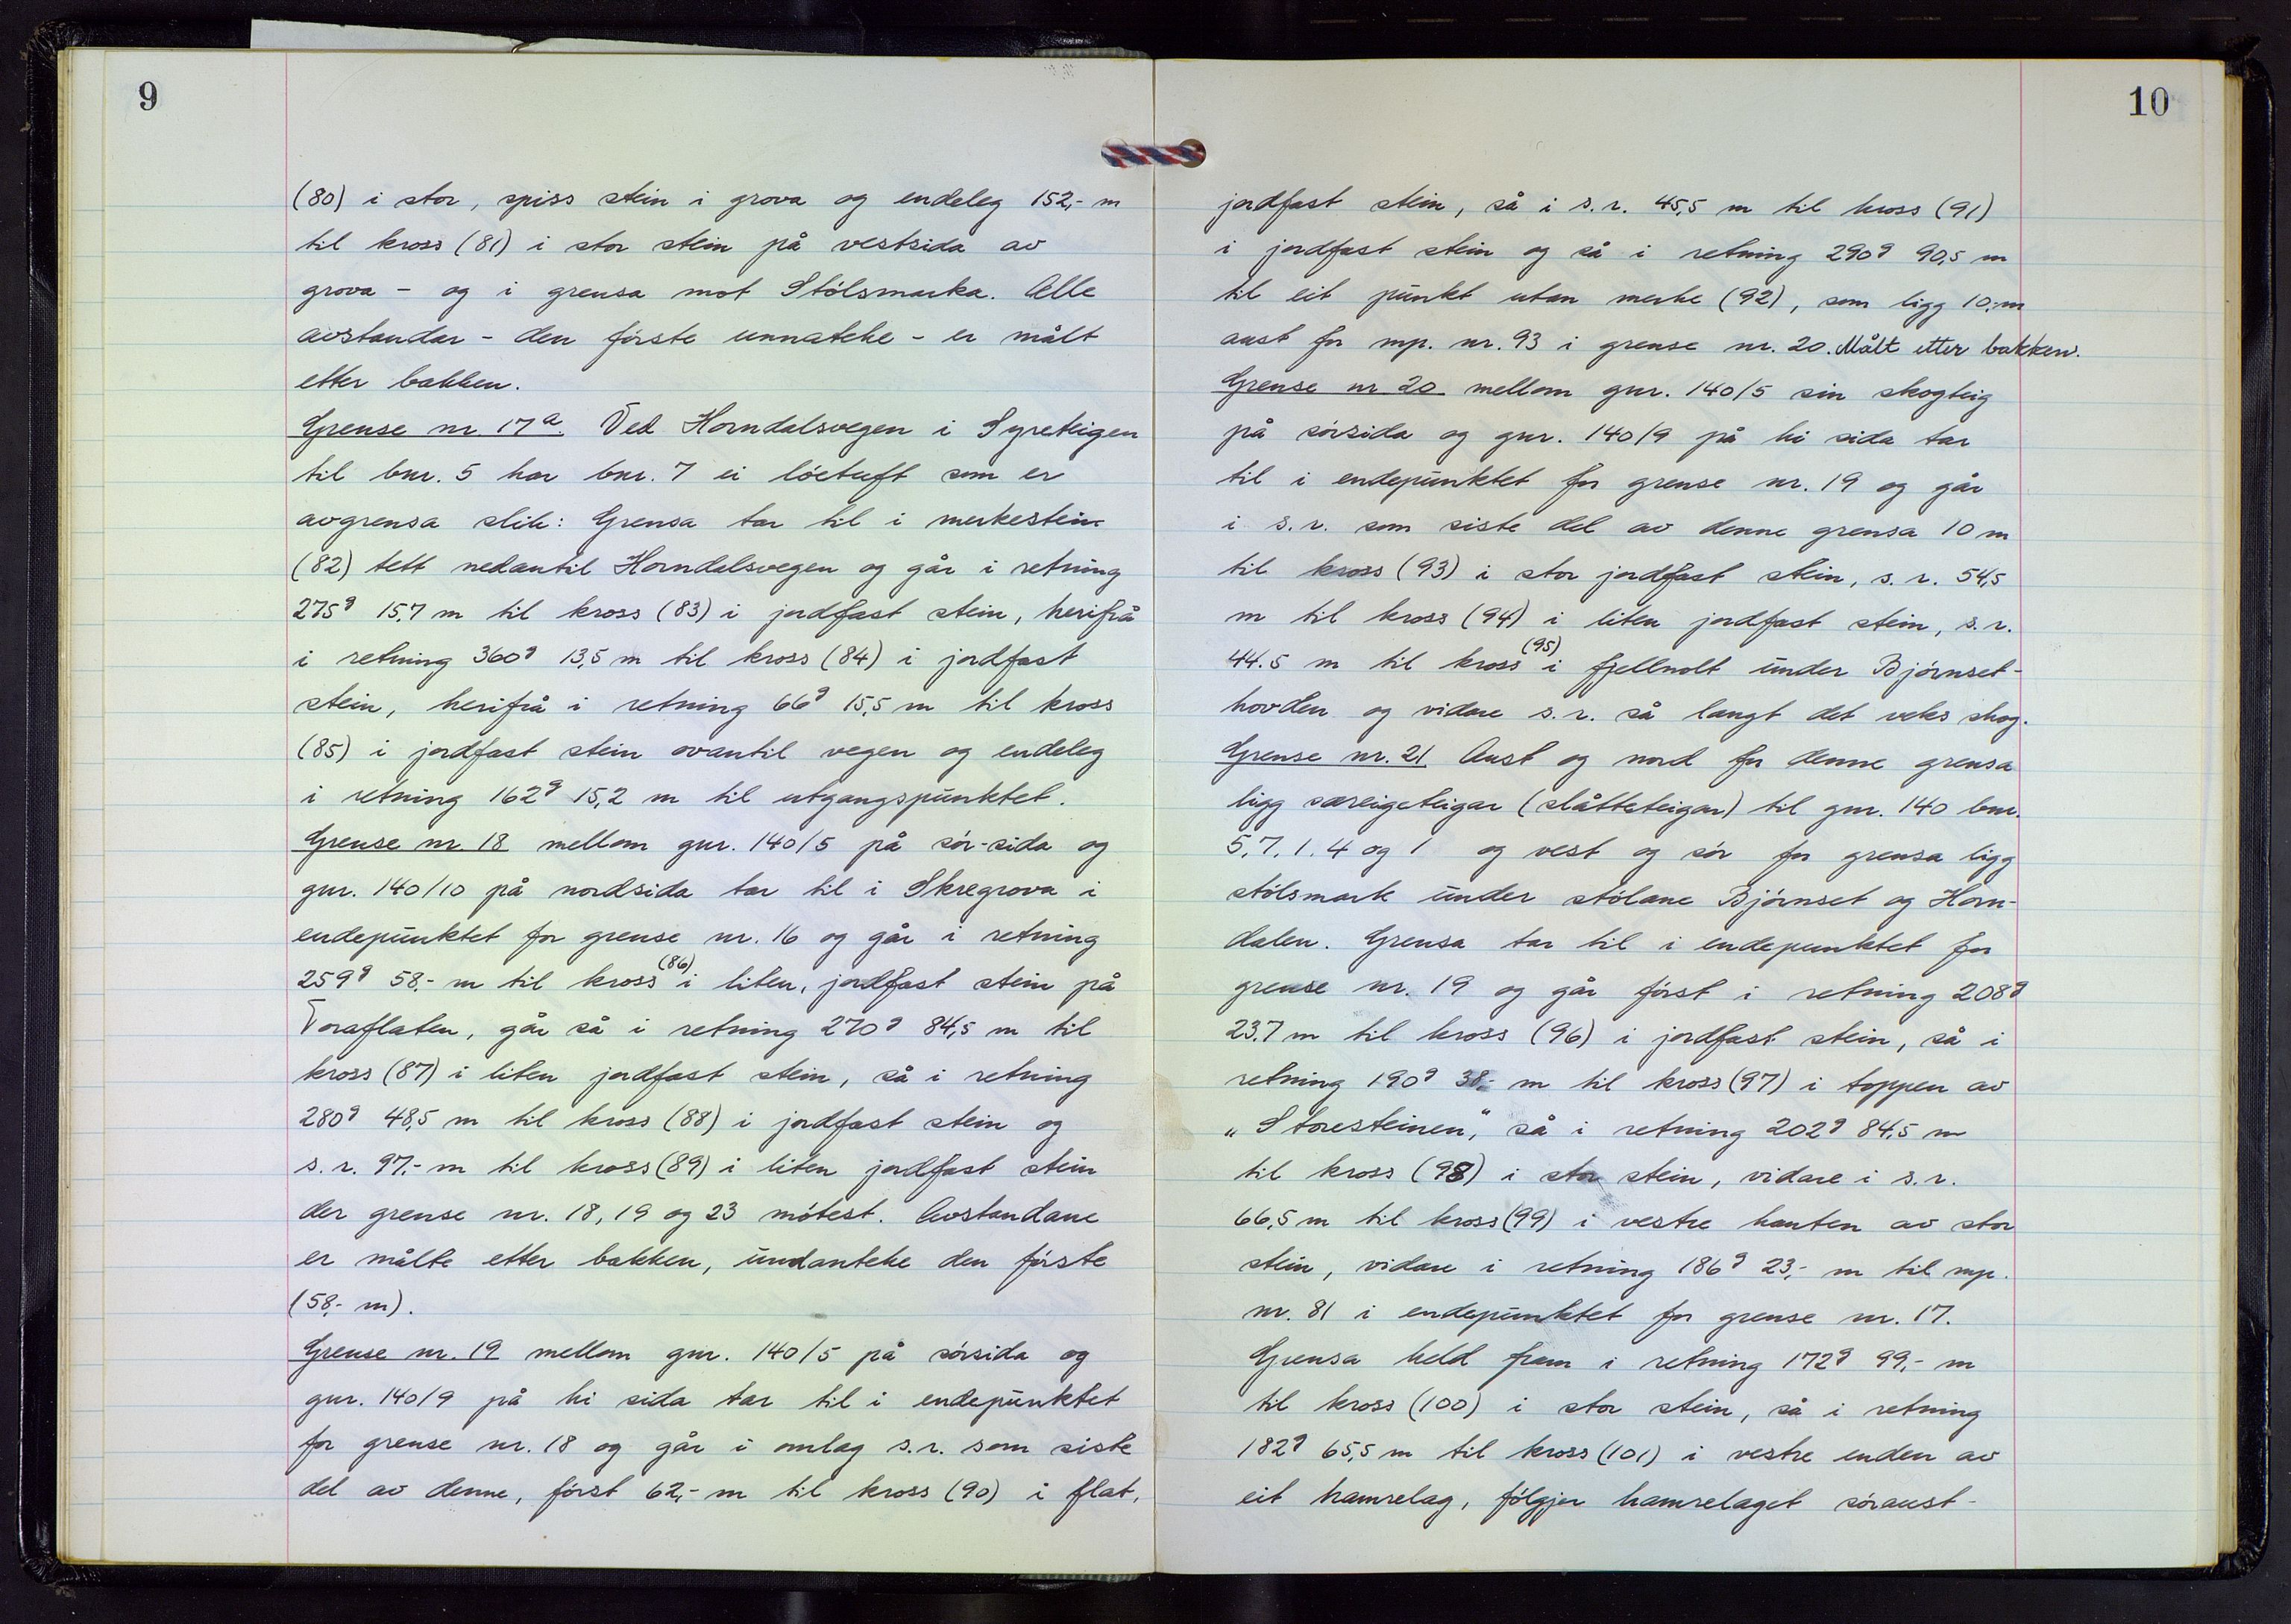 9
(80) i stor, spiss stein i grova og endeleg 152,- m
til kross (81) i stor stein på vestsida av
grova - og i grensa mot Stólsmarka. Alle
avstandar - den fórste unnateke - er målt
etter bakken.
Grense nr. 17a. Ved Horndalsvegen i Syreteigen
til bnr. 5 har bnr. 7 ei lóetuft som er
avgrensa slik: Grensa tar til i merkestein
(82) tett nedantil Horndalsvegen og går i retning
275g 15,7 m til kross (83) i jordfast stein, herifrå
i retning 360g 13,5 m til kross (84) i jordfast
stein, herifrå i retning 66g 15,5 m til kross
(85) i jordfast stein ovantil vegen og endeleg
i retning 162g 15,2 m til utgangspunktet.
Grense nr. 18 mellom gnr. 140/5 på sór-sida og
gnr. 140/10 på nordsida tar til i Skregrova i
endepunktet for grense nr. 16 og går i retning
259g 58,- m til kross (86) i liten, jordfast stein på
Toraflaten, går så i retning 270g 84,5 m til
kross (87) i liten jordfast stein, så i retning
280g 48,5 m til kross (88) i jordfast stein og
s. r. 97,- m til kross (89) i liten jordfast stein
der grense nr. 18, 19 og 23 mótest. Avstandane
er målte etter bakken, undanteke den fórste
(58,- m).
Grense nr. 19 mellom gnr. 140/5 på sórsida og
gnr. 140/9 på hi sida tar til i endepunktet
for grense nr. 18 og går i omlag s. r. som siste
del av denne, fórst 62,- m til kross (90) i flat,
10
jordfast stein, så i s. r. 45,5 m til kross (91)
i jordfast stein og så i retning 290g 90,5 m
til eit punkt utan merke (92), som ligg 10,- m
aust for mp. nr. 93 i grense nr. 20. Målt etter bakken.
Grense nr 20 mellom gnr. 140/5 sin skogteig
på sórsida og gnr. 140/9 på hi sida tar
til i endepunktet for grense nr. 19 og går
i s. r. som siste del av denne grensa 10 m
til kross (93) i stor jordfast stein, s. r. 54,5
m til kross (94) i liten jordfast stein, s. r.
44.5 m til kross (95) i fjellnolt under Bjórnset-
hovden og vidare s. r. så langt det veks skog.
Grense nr. 21 Aust og nord for denne grensa
ligg særeigeteigar (slåtteteigar) til gnr. 140 bnr.
5, 7, 1. 4 og 1 og vest og sór for grensa ligg
stólsmark under stólane Bjórnset og Horn-
dalen. Grensa tar til i endepunktet for
grense nr. 19 og går fórst i retning 208g
23.7 m til kross (96) i jordfast stein, så i
retning 190g 38,- m til kross (97) i toppen av
"Storesteinen", så i retning 202g 84,5 m
til kross (98) i stor stein, vidare i s. r.
66,5 m til kross (99) i vestre kanten av stor
stein, vidare i retning 186g 23,- m til mp.
nr. 81 i endepunktet for grense nr. 17.
Grensa held fram i retning 172g 99,- m
til kross (100) i stor stein, så i retning
182g 65,5 m til kross (101) i vestre enden av
eit hamrelag, fólgjer hamrelaget sóraust-